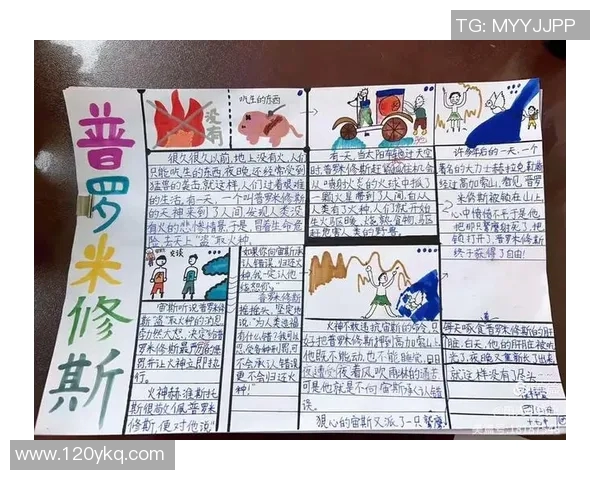 TG: MYYJJPP
普罗米修斯
没有
吃生的东西
很久很久以前,地上没有火,人们
只能吃生的东西,夜晚还经常受到
猛兽的袭击,就这样,人们过着艰难
的生活。有一天,一个叫普罗米修斯
的天神来到了人间,发现人类没
有火的悲惨情景,于是,冒着生命危
险,去天上"盗"取火种。
有一天,当太阳车
时,普罗米修斯
一颗火星带到了人间,自从
人类有了火种,人们就开始
生火取暖、烧熟食物、驱
赶危害人类的野兽。
许多年后的一天,一个
著名的大力士赫拉克
经过高加索山,看见普罗米
修斯被锁在山上,
心中愤愤不平,于是他
他那只鹫鹰射死了,把
锁打开了,普罗米修斯
终于获得了自由!
交谈
宙斯听说普罗米
修斯"盗"取火种的消息,
勃然大怒,决定给普
罗米修斯最严厉的惩
罚,并让火神立即执
行。
火神赫淮斯托
斯很敬佩普罗米
修斯,便对他说"
如果你向宙斯承
认错误,归还火
种,我一定
饶恕你。"
普罗米修斯
摇摇头,坚定地
说:"为人类造福,
有什么错?我可以
忍受各种
不会承认错误,
更不会归还火
种!"
火神不敢违抗宙斯的命令,只
好把普罗米修斯押到高加索山上,
他既不能动,也不能睡觉,日日
夜夜遭受着风吹雨淋的痛苦
可是他就是不向宙斯承认错
误。
狠心的宙斯又派了一只鹫鹰
每天啄食普罗米修斯的肝
脏,白天,他的肝脏被吃
光,夜晚又重新长了出来,
就这样没有了尽头……
www.120ykq.com